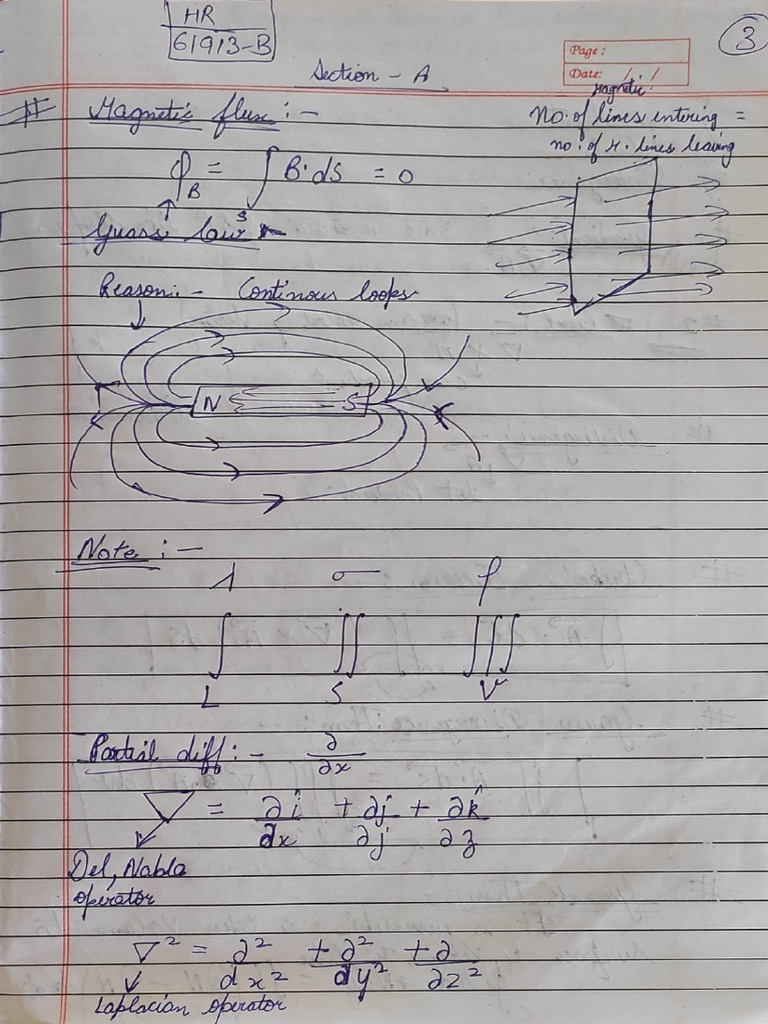 HR
61913-B
3
Section - A
Page :
Date: / /
# Magnetic flux :-
Magnetic
No. of lines entering =
no. of M. lines leaving
φ_B = ∫_S B·ds = 0
Guass law
Reason:- Continous loops
N S
Note :-
λ σ ρ
∫ ∬ ∭
L S V
Partail diff :- ∂/∂x
∇ = ∂î/dx + ∂ĵ/∂j + ∂k̂/∂z
Del, Nabla
operator
∇² = ∂²/dx² + ∂²/dy² + ∂/∂z²
Laplacian operator